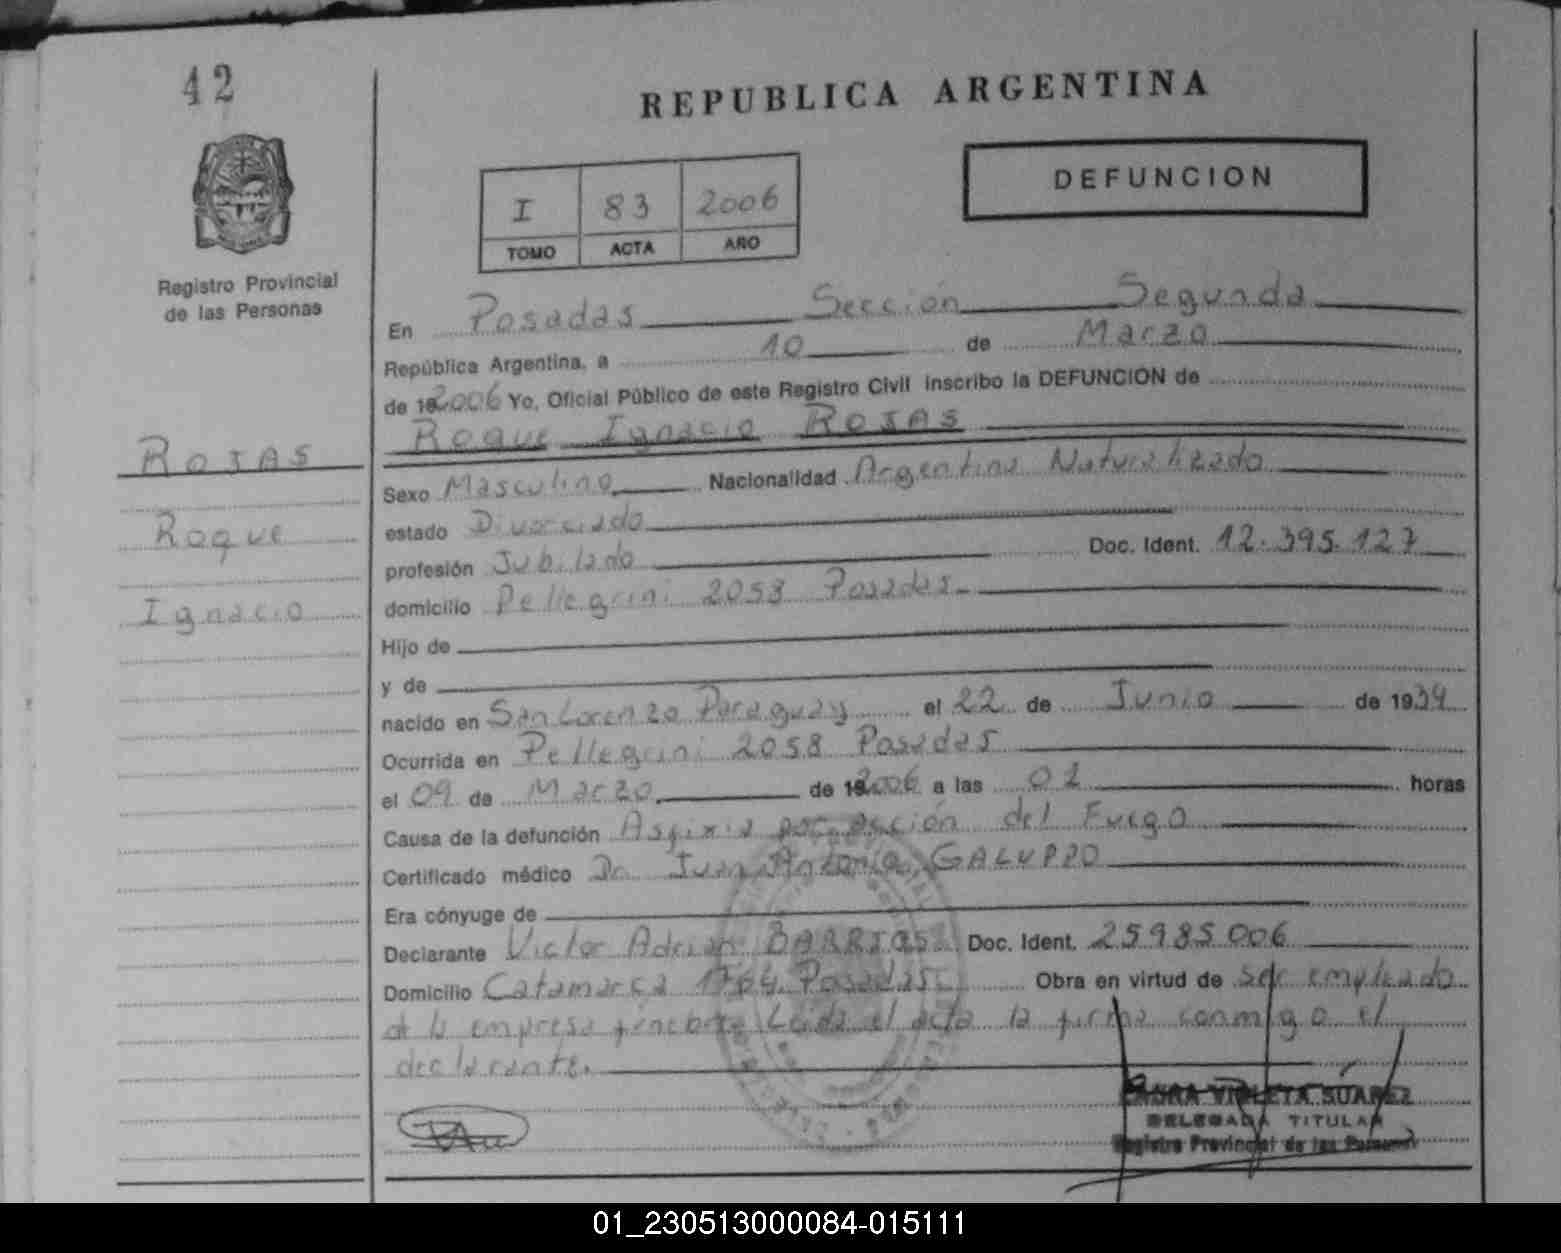 42
REPUBLICA ARGENTINA
DEFUNCION
I 83 2006
TOMO ACTA AÑO
Registro Provincial
de las Personas
En Posadas Sección Segunda
República Argentina, a 10 de Marzo
de 192006 Yo, Oficial Público de este Registro Civil inscribo la DEFUNCION de
Roque Ignacio ROJAS
ROJAS
Roque
Ignacio
Sexo Masculino Nacionalidad Argentino Naturalizado
estado Divorciado
profesión Jubilado Doc. Ident. 12.395.127
domicilio Pellegrini 2058 Posadas
Hijo de
y de
nacido en San Lorenzo Paraguay el 22 de Junio de 1939
Ocurrida en Pellegrini 2058 Posadas
el 09 de Marzo de 192006 a las 01 horas
Causa de la defunción Asfixia por acción del Fuego
Certificado médico Dr. Juan Antonio GALUPPO
Era cónyuge de
Declarante Victor Adrian BARRIOS Doc. Ident. 25985006
Domicilio Catamarca 1764 Posadas Obra en virtud de ser empleado
de la empresa fúnebre Leída el acta la firma conmigo el
declarante.
LAURA VIOLETA SUAREZ
DELEGADA TITULAR
Registro Provincial de las Personas
01_230513000084-015111